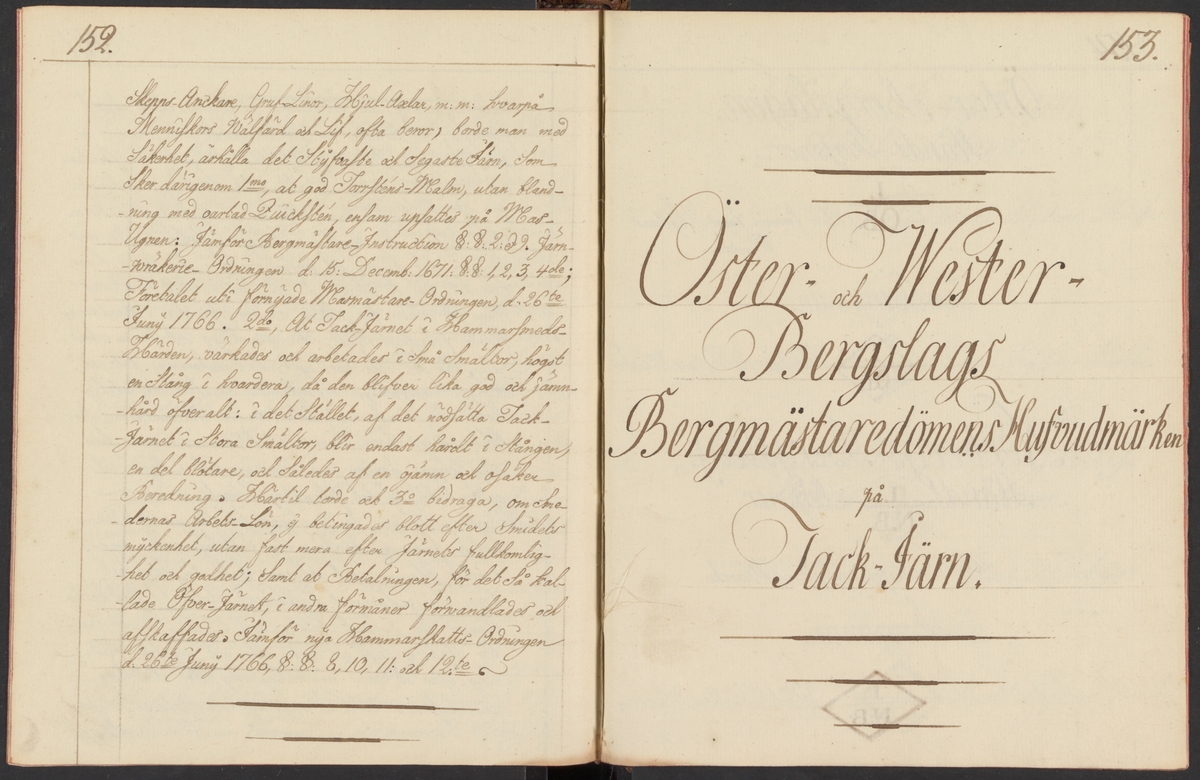 152.
Skepps-Anckare, Gruf-Linor, Hjul-Axlar, m: m: hvarpå
Menniskors Wälfärd och Lif, ofta beror, borde man med
Säkerhet, ärhålla det Styfvaste och Segaste Järn, Som
Sker därigenom 1mo, at god Torrstens-Malm, utan bland-
-ning med oartad Quicksten, ensam upsattes på Mas-
Ugnen: Jämför Bergmästare-Instruction §: §: 2: & 9. Järn-
-wräkerie-Ordningen d: 15: Decemb: 1671: §: §: 1, 2, 3, 4de;
Företalet uti förnyade Masmästare-Ordningen, d: 26te
Juny 1766. 2do, At Tack-Järnet i Hammarsmeds-
Härden, värkades och arbetades i Små Smältor, högst
en Stång i hvardera, då den blifver lika god och jämn-
-hård öfveralt: i det Stället, af det nödsatta Tack-
-Järnet i Stora Smältor, blir endast hårdt i Stången,
en del blötare, och Således af en ojämn och osäker
Beredning. Härtil torde ock 3o bidraga, om Sme-
-dernas Arbets-Lön, ej betingades blott efter Smidets
myckenhet, utan fast mera efter Järnets fullkomlig-
-het och godhet; Samt at Betalningen, för det Så kal-
-lade Öfver-Järnet, i andra förmåner förvandlades och
afskaffades. Jämför nya Hammarskatts-Ordningen
d: 26te Juny 1766, §: §: 8, 10, 11: och 12te.
153.
Öster- och Wester-
Bergslags
Bergmästaredömens Hufvudmärken
på
Tack-Järn.